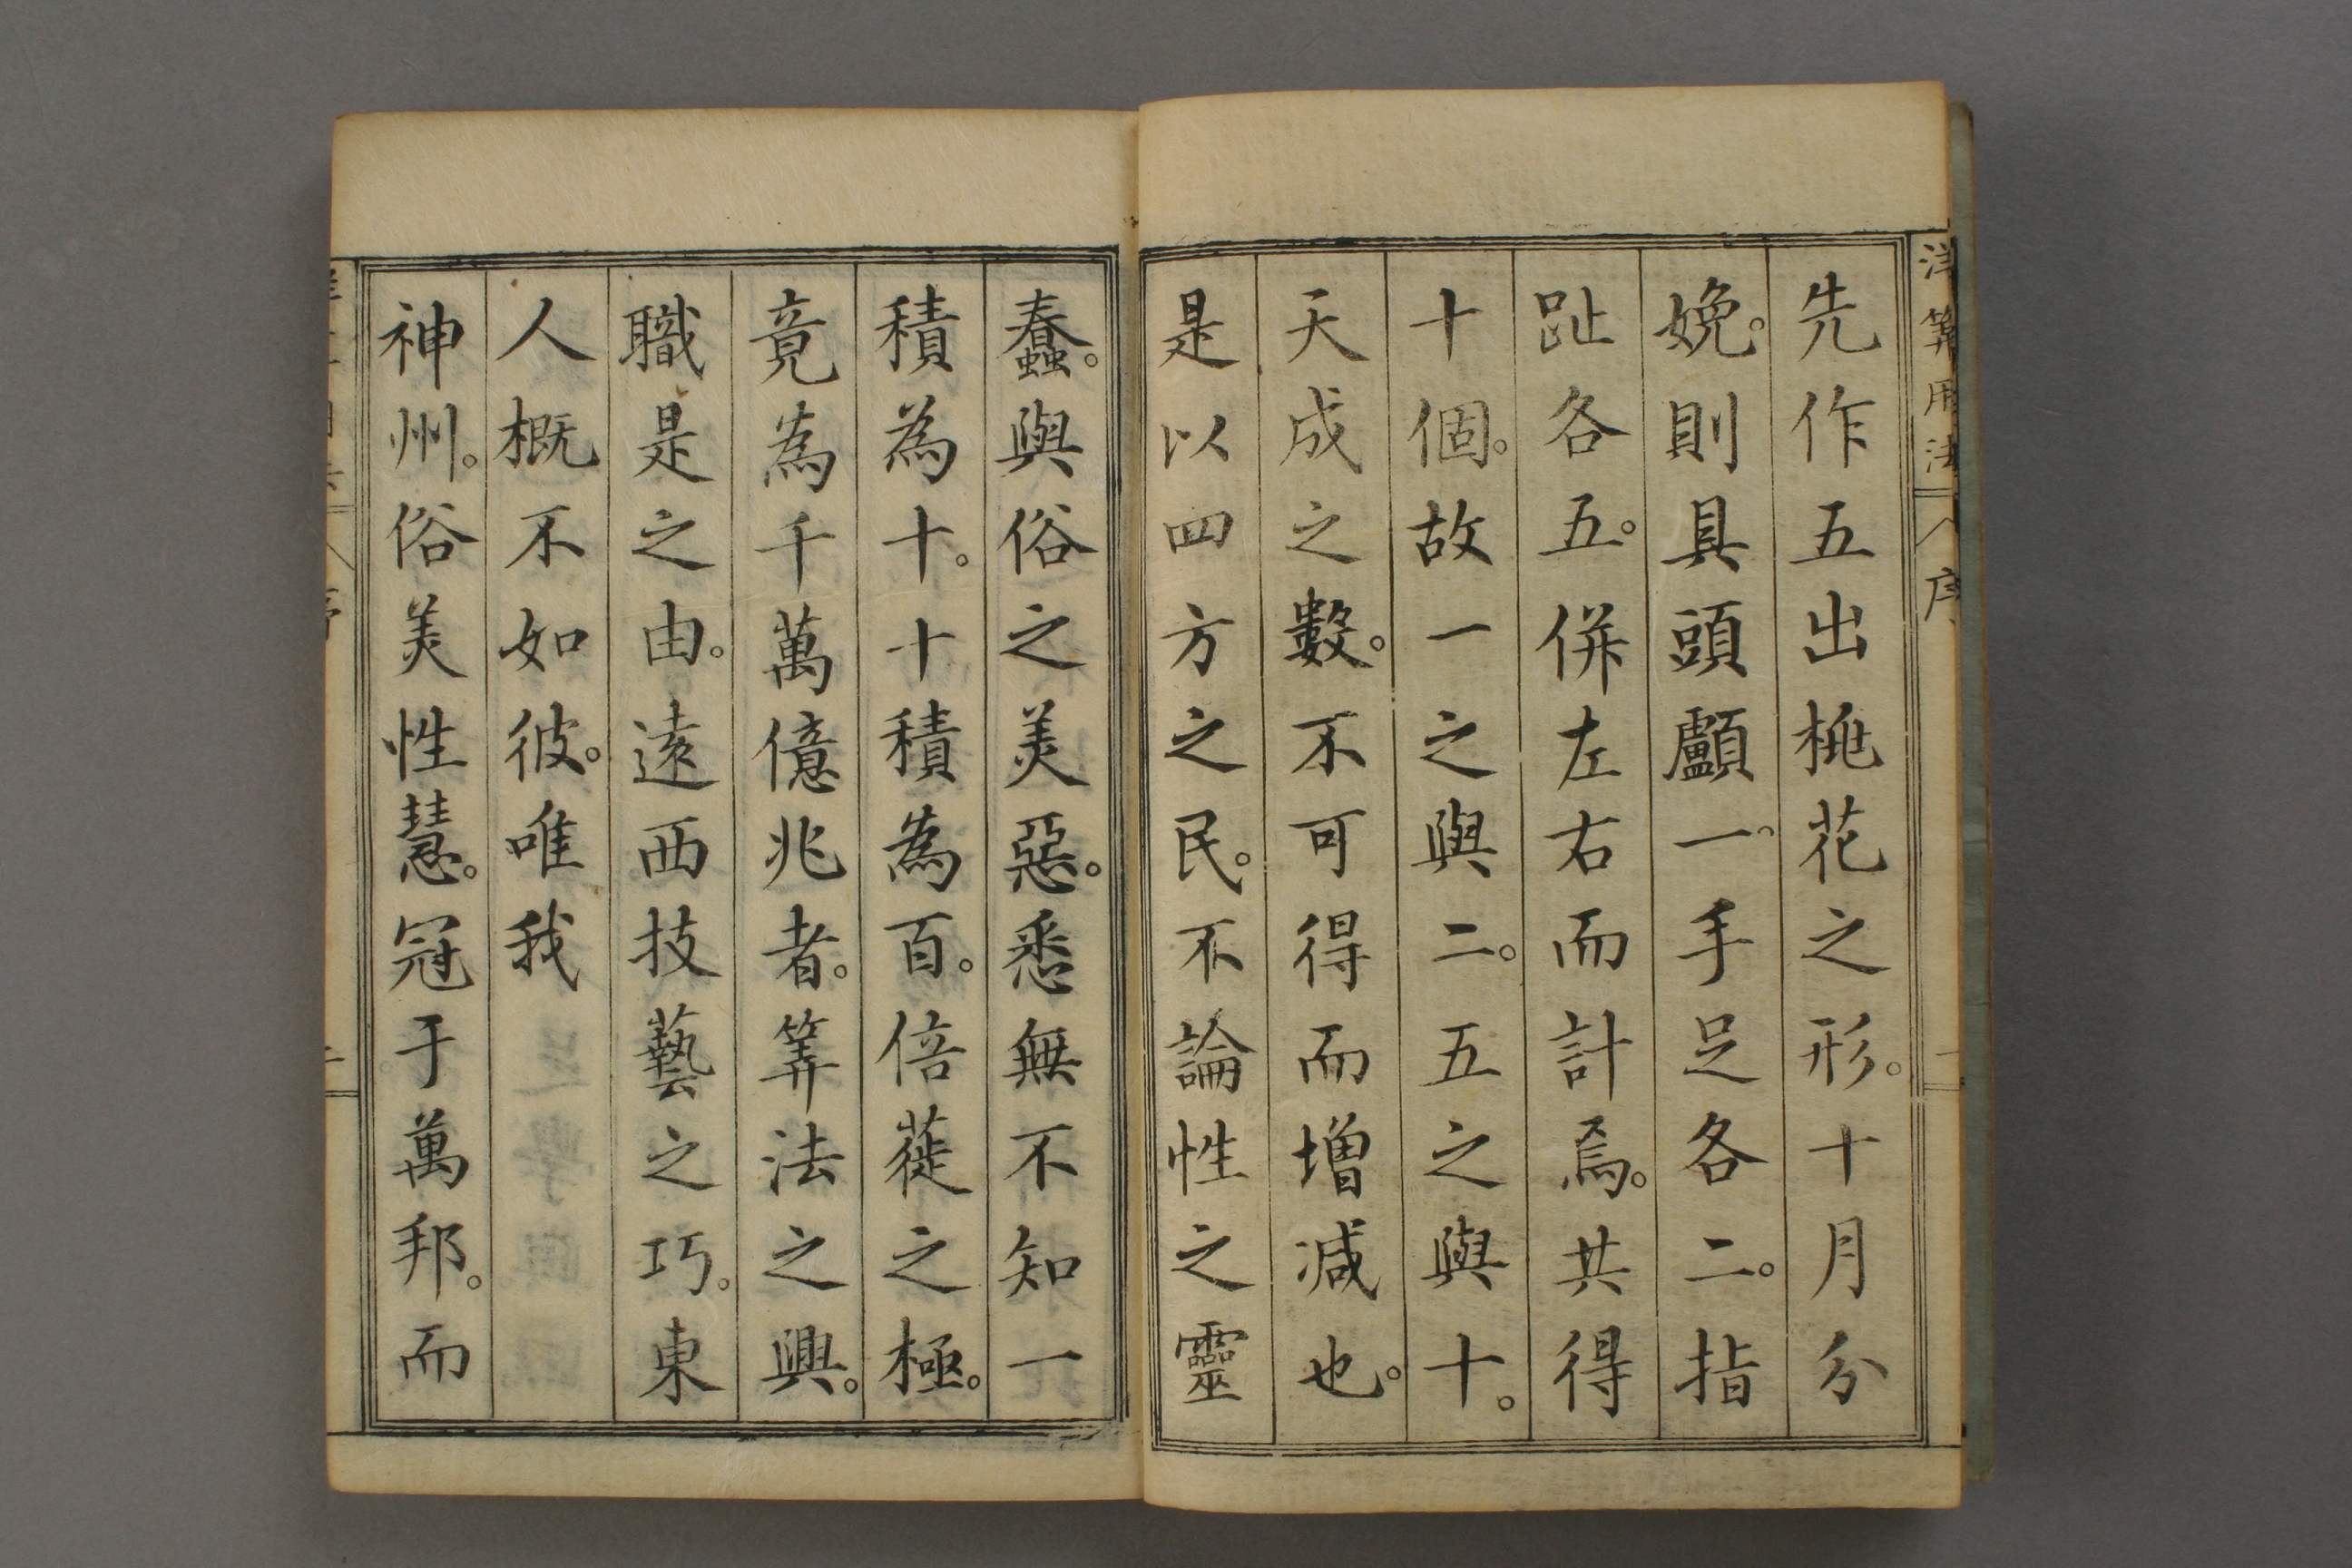 洋算用法
序
先作五出桃花之形。十月分
娩。則具頭顱一。手足各二。指
趾各五。併左右而計焉。共得
十個。故一之與二。五之與十。
天成之數。不可得而增減也。
是以四方之民。不論性之靈
蠢。與俗之美惡。悉無不知一
積為十。十積為百。倍蓰之極。
竟為千萬億兆者。筭法之興。
職是之由。遠西技藝之巧。東
人概不如彼。唯我
神州。俗美性慧。冠于萬邦。而